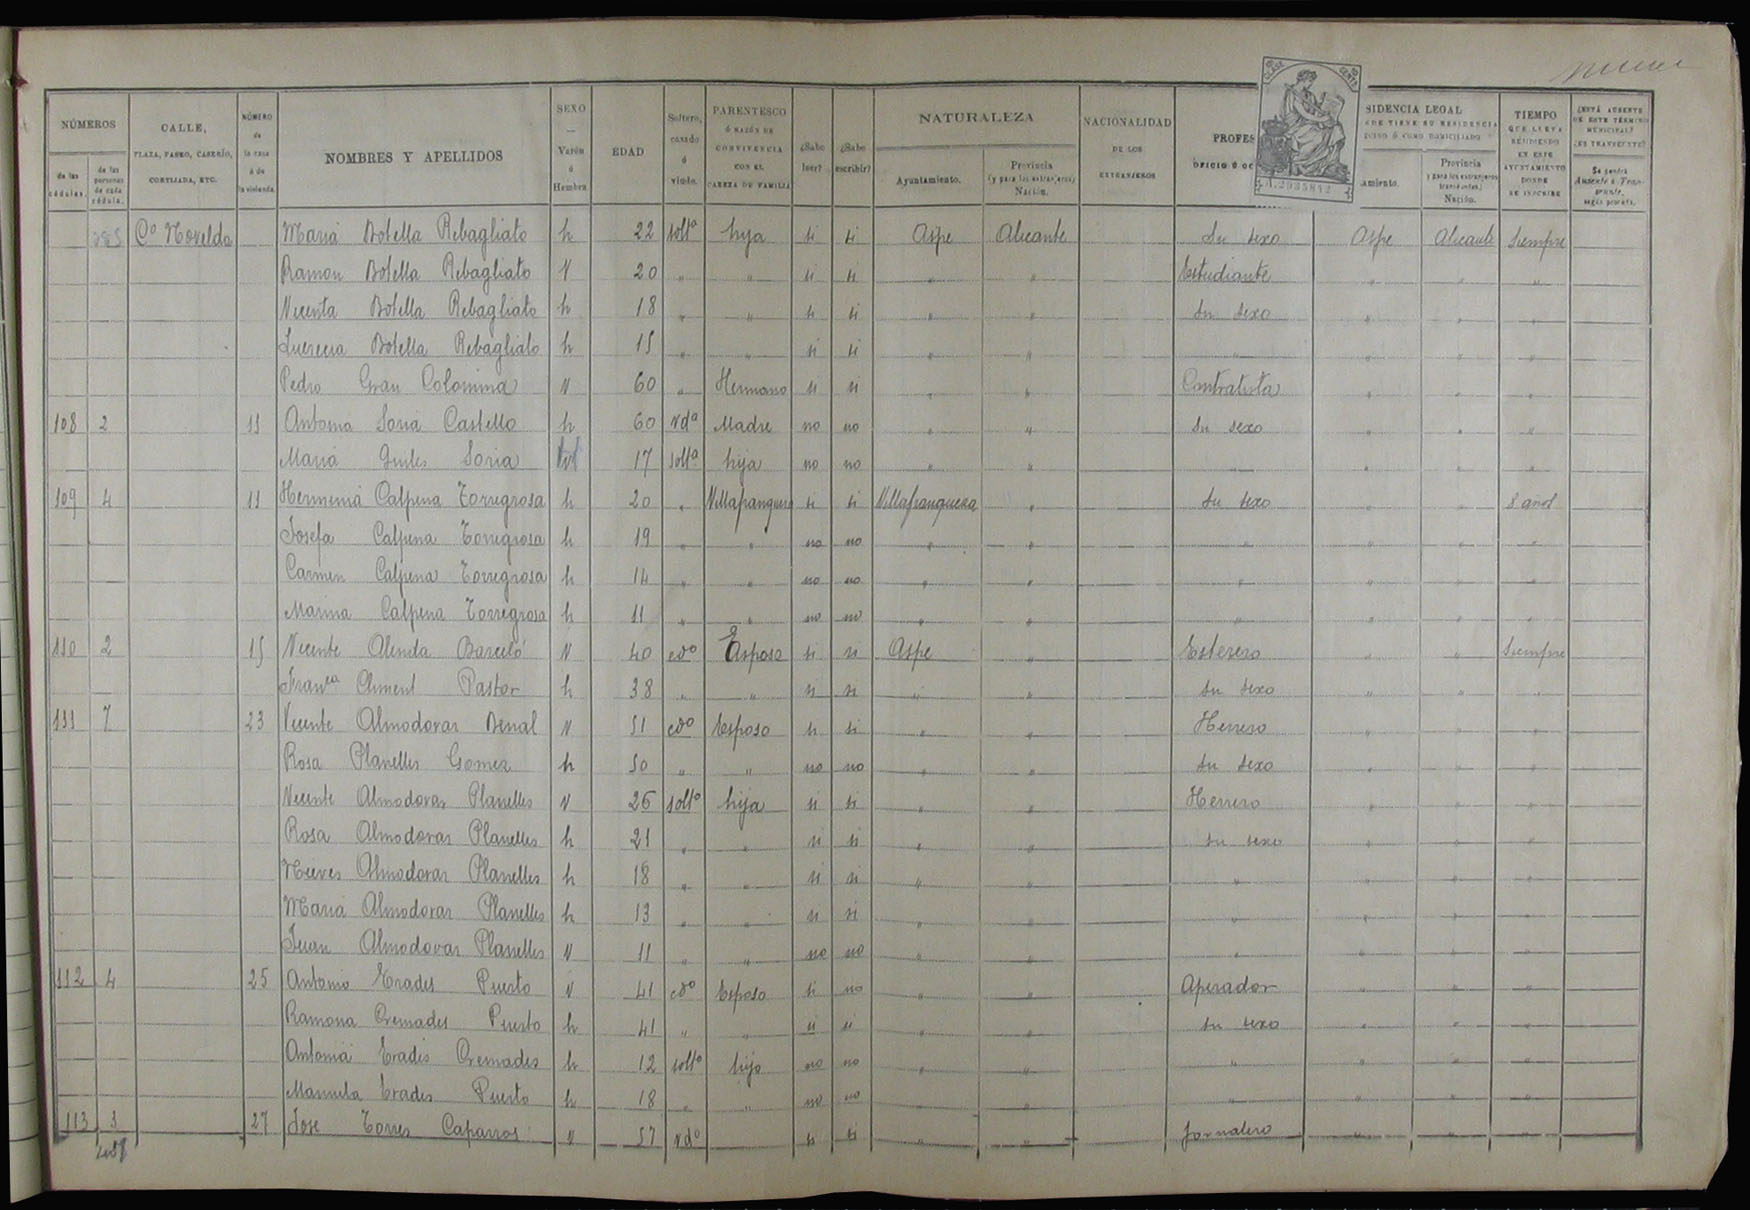 NÚMEROS
de las cédulas.
de las personas de cada cédula.
CALLE,
PLAZA, PASEO, CASERÍO,
CORTIJADA, ETC.
NÚMERO de la casa ó de la vivienda.
NOMBRES Y APELLIDOS
SEXO — Varón ó Hembra
EDAD
Soltero, casado ó viudo.
PARENTESCO Ó RAZÓN DE CONVIVENCIA CON EL CABEZA DE FAMILIA
¿Sabe leer?
¿Sabe escribir?
NATURALEZA
Ayuntamiento.
Provincia (y para los extranjeros) Nación.
NACIONALIDAD DE LOS EXTRANJEROS
PROFES
OFICIO Ó OC
CLASE
A.2935812
SIDENCIA LEGAL
DE TIENE SU RESIDENCIA
CINO Ó COMO DOMICILIADO
amiento.
Provincia y para los extranjeros transeuntes.) Nación.
TIEMPO QUE LLEVA RESIDIENDO EN ESTE AYUNTAMIENTO DONDE SE INSCRIBE
¿ESTÁ AUSENTE DE ESTE TÉRMINO MUNICIPAL? ¿ES TRANSEUNTE?
Se pondrá Ausente ó Transeunte, según proceda.
285 Cº Novelda Maria Botella Rebagliato h 22 soltª hija si si Aspe Alicante Su sexo Aspe Alicante Siempre
Ramon Botella Rebagliato V 20 " " si si " " Estudiante " " "
Vicenta Botella Rebagliato h 18 " " si si " " Su sexo " " "
Lucrecia Botella Rebagliato h 15 " " si si " " " " " "
Pedro Gran Colomina V 60 " Hermano si si " " Contratista " " "
108 2 11 Antonia Soria Castello h 60 Vdª Madre no no " " Su sexo " " "
Maria Soria 17 soltª hija no no " " " " " "
109 4 11 Herminia Calpena Torregrosa h 20 " si si Villafranqueza " Su sexo " " 8 años
Josefa Calpena Torregrosa h 19 " " no no " " " " " "
Carmen Calpena Torregrosa h 14 " " no no " " " " " "
Marina Calpena Torregrosa h 11 " " no no " " " " " "
110 2 15 Vicente Alenda Barceló V 40 cdo Esposo si si Aspe " Esterero " " Siempre
Franca Climent Pastor h 38 " " si si " " Su sexo " " "
111 7 23 Vicente Almodovar V 51 cdo Esposo si si " " Herrero " " "
Rosa Planelles Gomez h 50 " " no no " " Su sexo " " "
Vicente Almodovar Planelles V 26 solto hijo si si " " Herrero " " "
Rosa Almodovar Planelles h 21 " " si si " " Su sexo " " "
Nieves Almodovar Planelles h 18 " " si si " " " " " "
Maria Almodovar Planelles h 13 " " si si " " " " " "
Juan Almodovar Planelles V 11 " " no no " " " " " "
112 4 25 Antonio Erades Puerto V 41 cdo Esposo si no " " Aperador " " "
Ramona Cremades Puerto h 41 " " si si " " Su sexo " " "
Antonia Erades Cremades h 12 solto hijo no no " " " " " "
Manuela Erades Puerto h 18 " " no no " " " " " "
113 3 27 Jose Torres Caparros V 57 Vdo si si " " Jornalero " " "